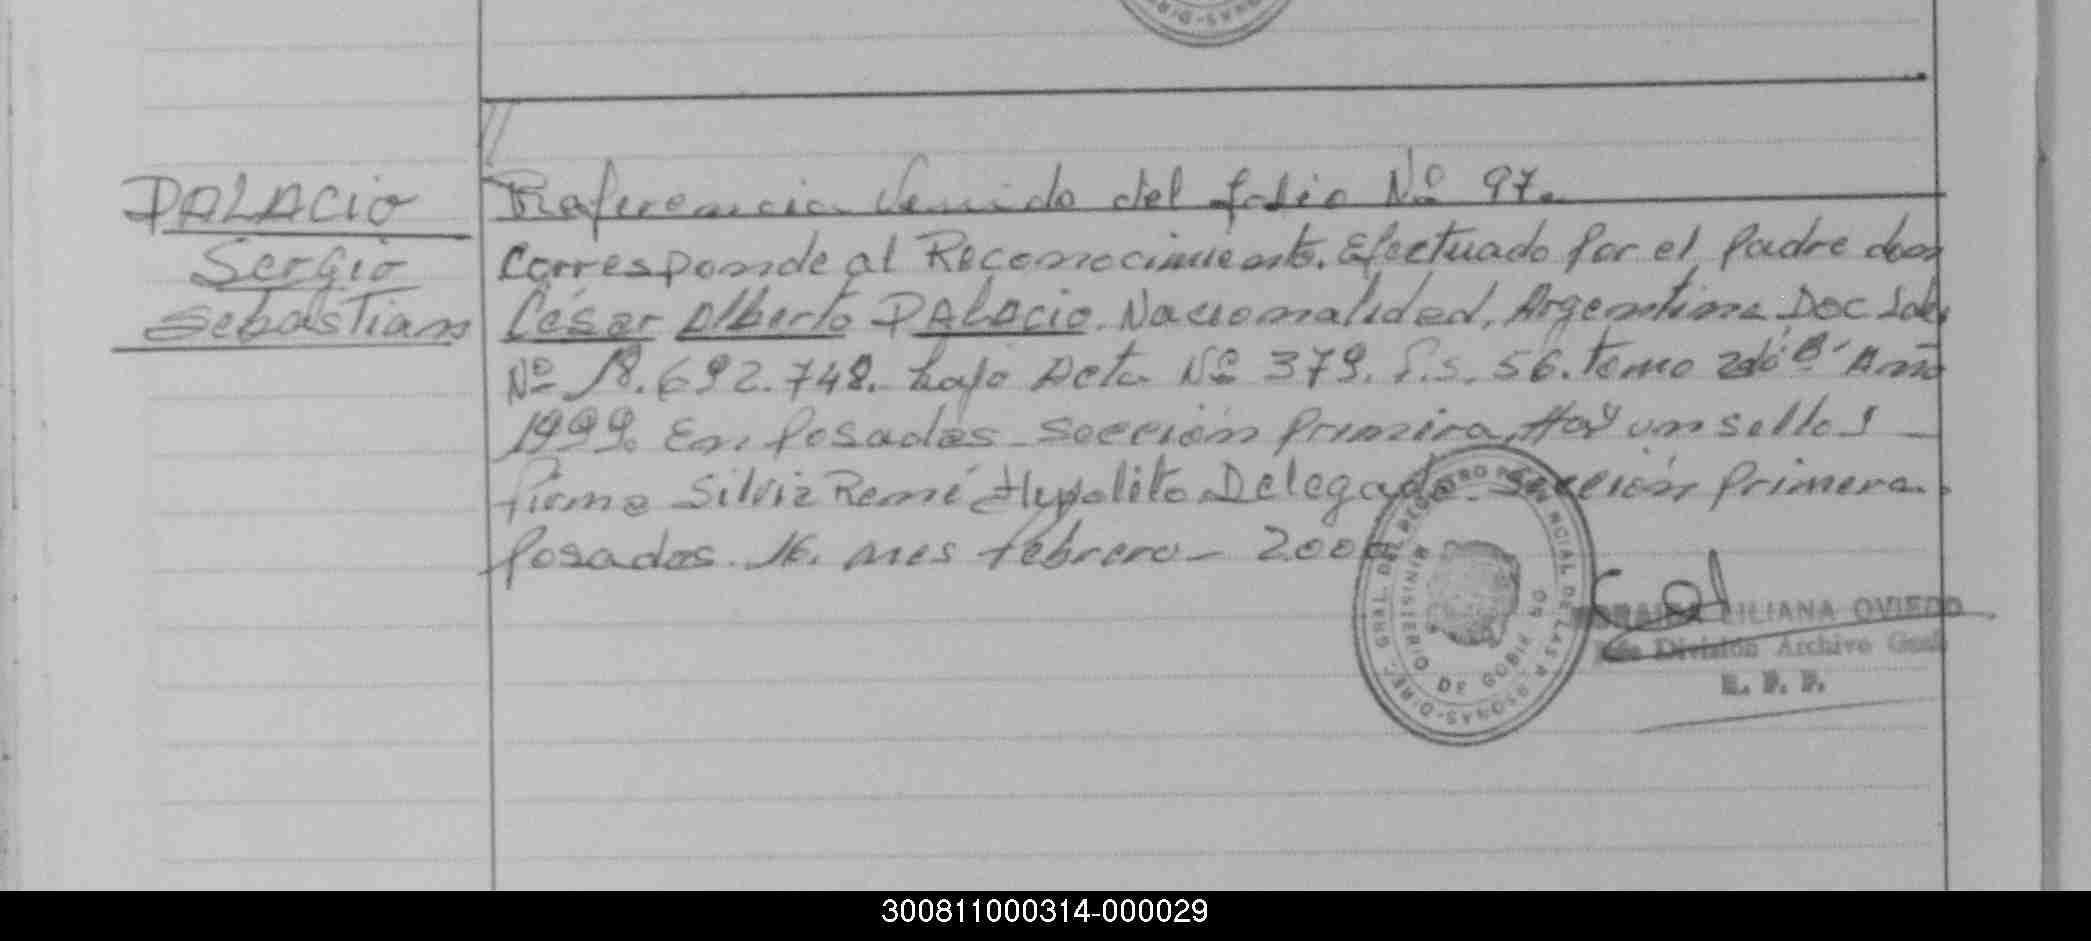 PALACIO
Sergio
Sebastian
Referencia Venida del folio Nº 97.
Corresponde al Reconocimiento. Efectuado por el padre don
César Alberto PALACIO. Nacionalidad, Argentina Doc Ide,
Nº 18.692.748. bajo Acta Nº 379. f.s. 56. tomo 2do "B" Año
1999. En, posadas sección primera, Hay un sello y
firma Silvia René Hypolito Delegada. Sección primera.
posadas. 16. mes febrero - 2000
DIREC. GRAL. DEL REGISTRO PROVINCIAL DE LAS PERSONAS
MINISTERIO DE GOBIERNO
LILIANA OVIEDO
División Archivo Gral
R. P. P.
300811000314-000029